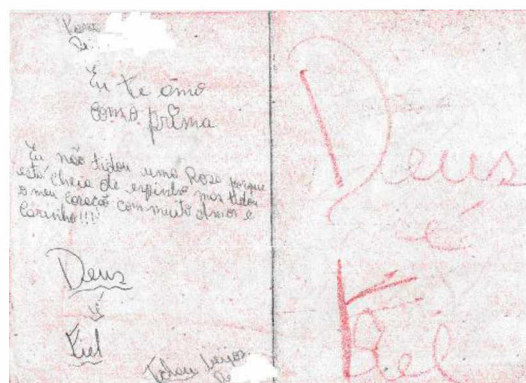 Para
De:
Eu te ámo
como prima
Eu não tidou uma Rosa porque
está cheia de espinho mas tidou
o meu coração com muito Amor e
Carinho!!!
Deus
é
Fiel
Tchau beijos
De
Deus
é
Fiel